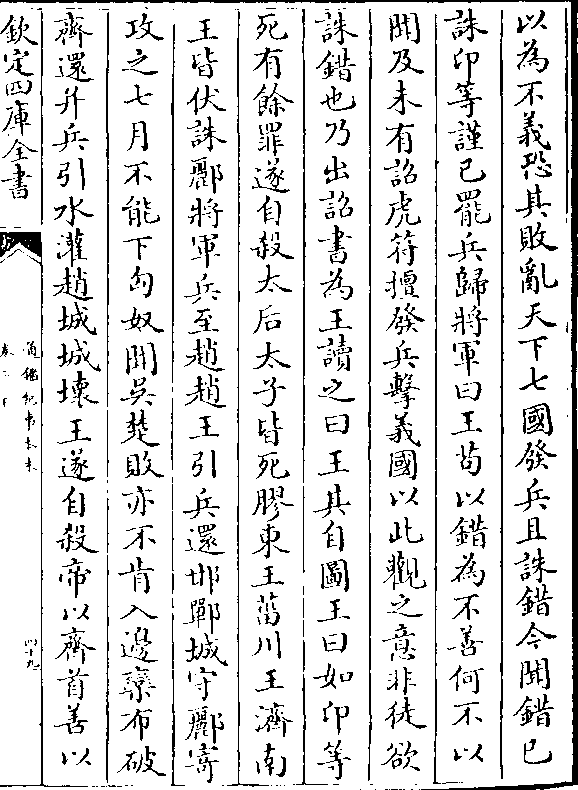 以為不義恐其敗亂天下七國發兵且誅錯今聞錯已
誅卬等謹已罷兵歸將軍曰王苟以錯為不善何不以
聞及未有詔虎符擅發兵擊義國以此觀之意非徒欲
誅錯也乃出詔書為王讀之曰王其自圖王曰如卬等
死有餘罪遂自殺太后太子皆死膠東王菑川王濟南
王皆伏誅酈將軍兵至趙趙王引兵還邯鄲城守酈寄
攻之七月不能下匈奴聞吳楚敗亦不肯入邊欒布破
齊還并兵引水灌趙城城壞王遂自殺帝以齊首善以
欽定四庫全書
通鑑紀事本末
四十九